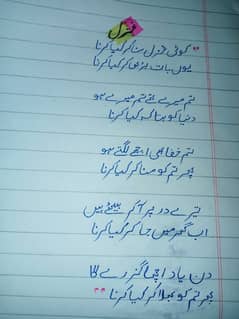 غزل
"کوئی غزل سنا کر کیا کرنا
یوں بات بڑھا کر کیا کرنا
تم میرے تھے تم میرے ہو
دنیا کو بتا کر کیا کرنا
تم خفا بھی اچھے لگتے ہو
پھر تم کو منا کر کیا کرنا
تیرے در پر آ کر بیٹھے ہیں
اب گھر میں جا کر کیا کرنا
دن یاد اچھا گزرے گا
پھر تم کو بھلا کر کیا کرنا"